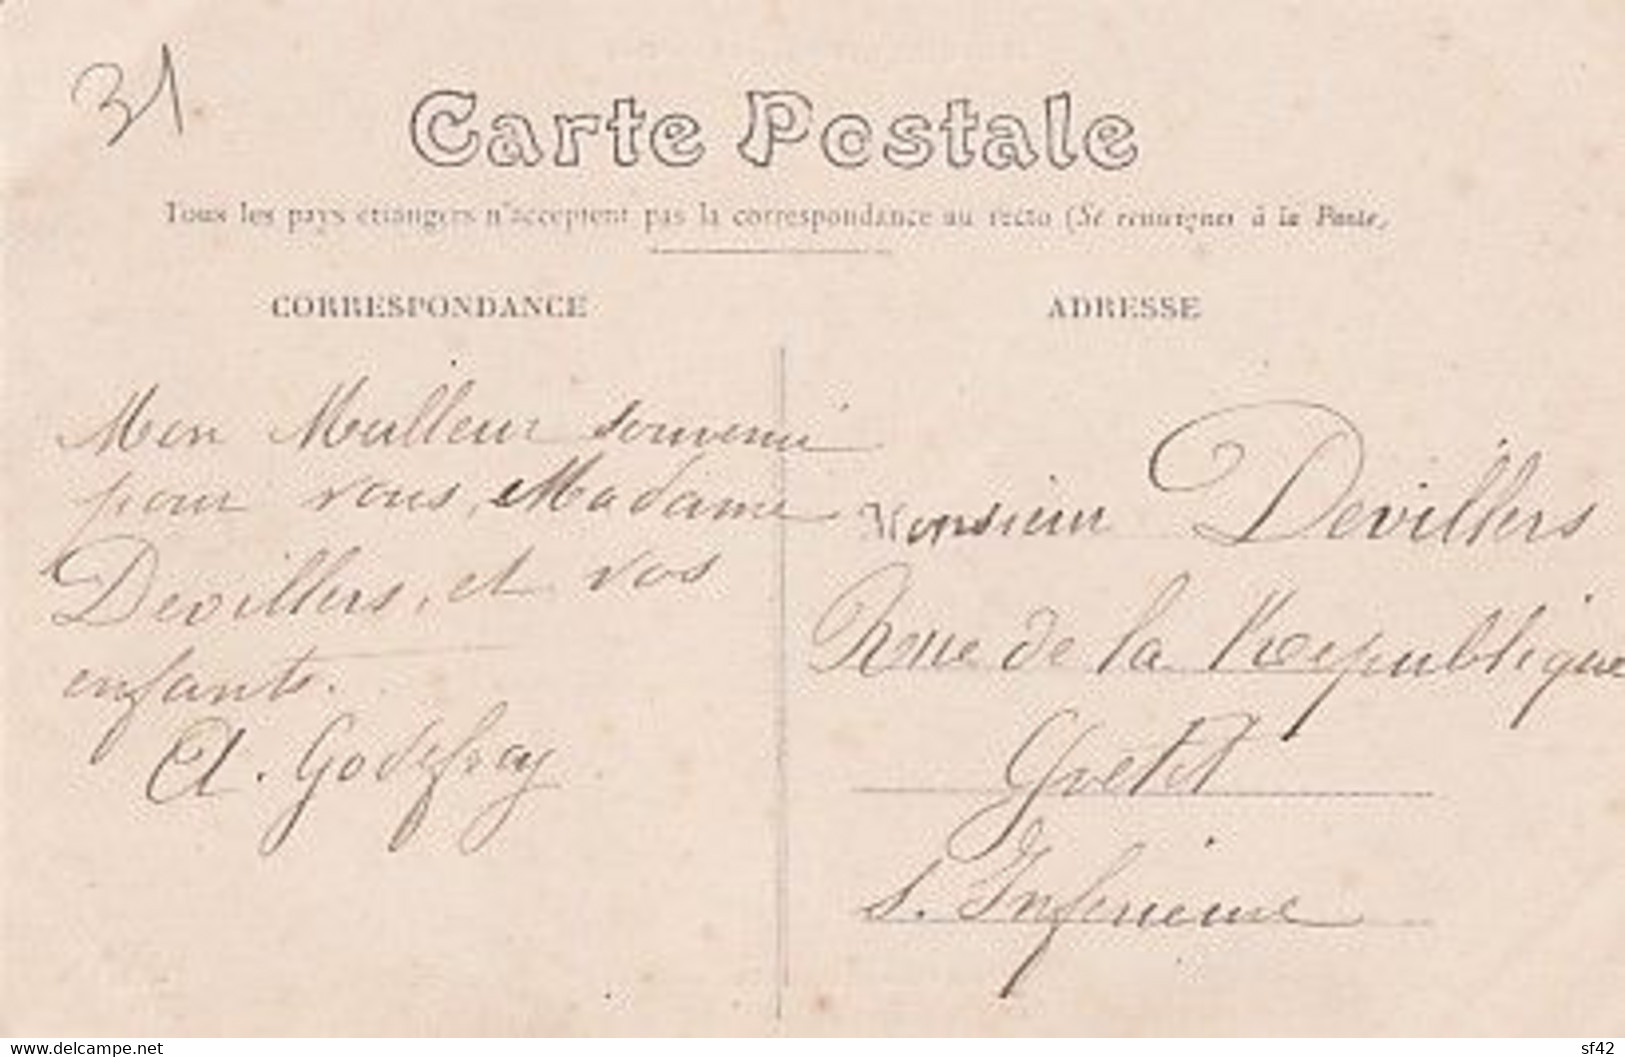 31
Carte Postale
Tous les pays étrangers n'acceptent pas la correspondance au recto (Se renseigner à la Poste)
CORRESPONDANCE
ADRESSE
Mon Meilleur souvenir
pour vous, Madame
Devillers, et vos
enfants.
A. Godefroy
Monsieur Devillers
Rue de la République
Yvetot
S. Inférieure
www.delcampe.net
sf42